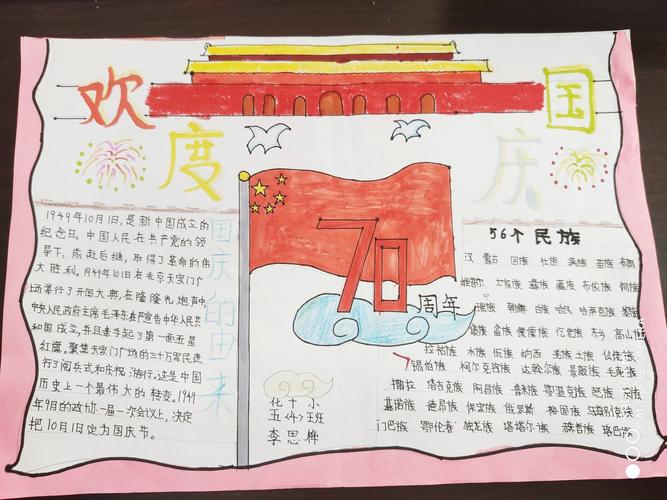 欢 度 国 庆
国庆的由来
1949年10月1日,是新中国成立的
纪念日。中国人民在共产党的领
导下,前赴后继,取得了革命的伟
大胜利。1949年10日在北京天安门广
场举行了开国大典,在隆隆礼炮声中,
中央人民政府主席毛泽东庄严宣告中华人民共
和国成立,并且亲手起了第一面五星
红旗。聚集天安门广场的三十万军民进
行了阅兵式和庆祝游行。这是中国
历史上一个最伟大的转变。1949
年9月的政协一届一次会议上,决定
把10月1日定为国庆节。
70
周年
花十小
五〈4〉班
李思桦
56个民族
汉 蒙古 回族 壮族 满族 苗族
土家族 彝族 藏族 布依族 侗族
瑶族 朝鲜 白族 哈尼 哈萨克族 黎族
傣族 畲族 傈僳族 仡佬族 东乡 高山族
拉祜族 水族 佤族 纳西 羌族 土族 仫佬族
锡伯族 柯尔克孜族 达斡尔族 景颇族 毛南族
撒拉 塔吉克族 阿昌族 普米族 鄂温克族 怒族 京族
基诺族 德昂族 保安族 俄罗斯 裕固族 乌孜别克族
门巴族 鄂伦春 独龙族 塔塔尔族 赫哲族 珞巴族